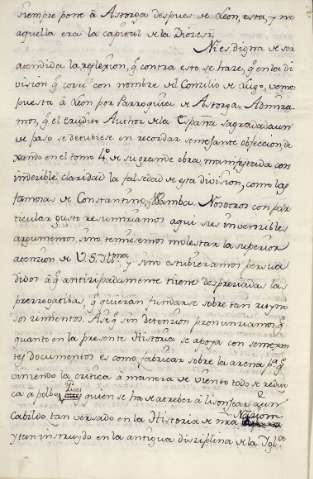 siempre pone à Astorga despues de Leon, esta, y no
aquella era la capital de la Diocesi.
Ni es digna de ser
atendida la reflexion, q. contra esto se hace, q. en la di
vision q. corre con nombre del Concilio de Lugo, como
puesta à Leon por Parroquia de Astorga. Admira
mos, q. el erudito Author de la España Sagrada aun
de paso se detubiese en recordar semejante objecion, de
xando en el tomo 4.º de su grande obra, manifestada con
indecible claridad la falsedad de esta division, como las
famosas de Constantino, y Wamba. Nosotros con par
ticular gusto resumiriamos aqui sus invencibles
argumentos, sin temiesemos molestar la superior
atencion de V.S. Ill.ma y sin estubieramos persua
didos à q. anticipadamente tiene despreciadas las
prerrogatibas, q. quieran fundarse sobre tan ruyno
sos cimientos. Asi q. sin detencion pronunciamos, q.
quanto en la presente Historia se apoya con semejan
tes documentos es como fabricar sobre la arena, p.s q.
viniendo la critica à manera de viento todo se redu
ca à polbo, quien se ha de atreber à lisonjear à un
Cabildo tan versado en la Historia de nr̃a Nacion
y tan instruydo en la antigua disciplina de la Igl.a